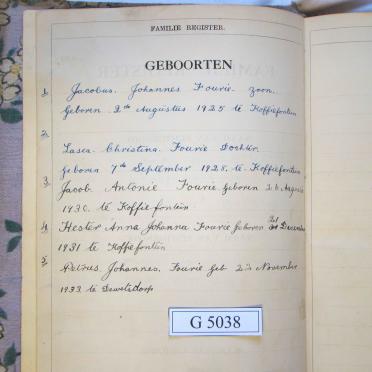 FAMILIE REGISTER.
GEBOORTEN
1 Jacobus. Johannes Fourie. zoon.
Geboren 2th Augustus 1925 te Koffiefontein
2 Christina. Fourie Dochter.
geboren 7th September 1928. te Koffiefontein
3 Jacob. Antonie Fourie Geboren Augus
1930. te Koffiefontein
4 Hester Anna Johanna Fourie Geboren December
1931 te Koffiefontein
5 Petrus. Johannes. Fourie Geb November
1933 te Dewetsdorp
G 5038